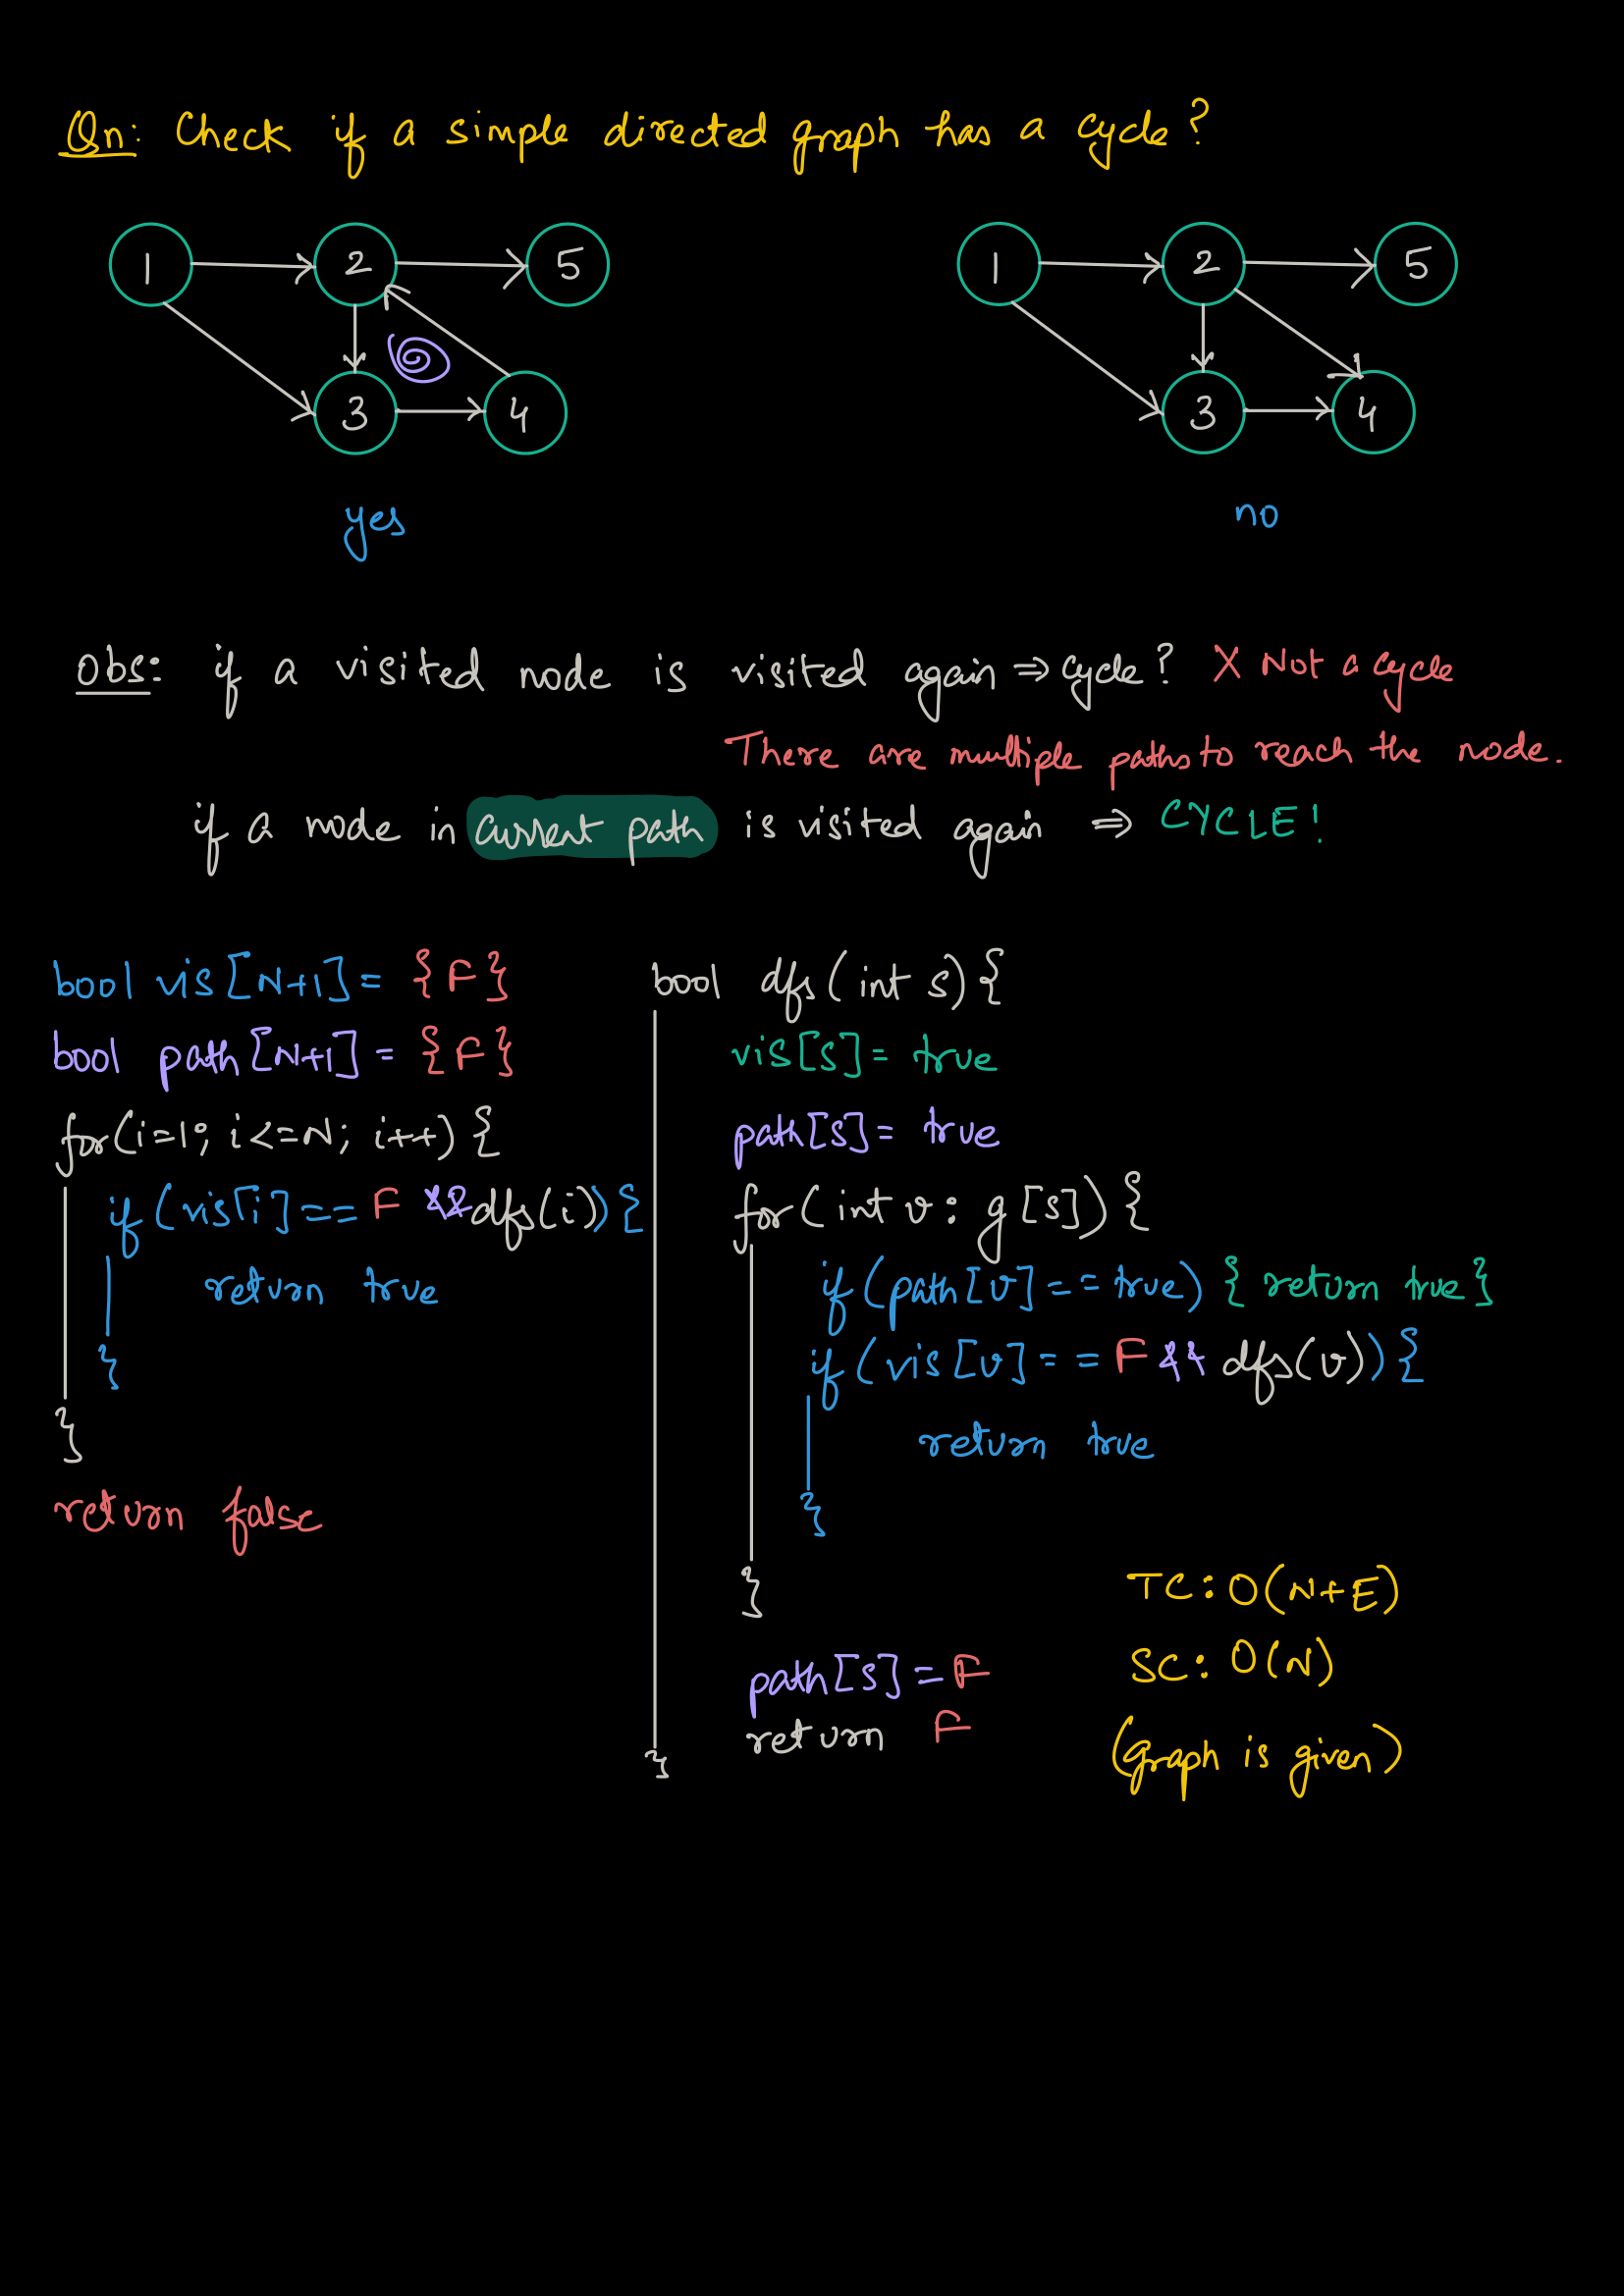 Qn: Check if a simple directed graph has a cycle?
1 2 5
3 4
yes
1 2 5
3 4
no
Obs: if a visited node is visited again ⇒ cycle? X Not a cycle
There are multiple paths to reach the node.
if a node in current path is visited again ⇒ CYCLE!
bool vis[N+1] = {F}
bool path[N+1] = {F}
for(i=1; i<=N; i++) {
if (vis[i] == F && dfs(i)) {
return true
}
}
return false
bool dfs(int s) {
vis[s] = true
path[s] = true
for(int v: g[s]) {
if (path[v] == true) { return true}
if (vis[v] == F && dfs(v)) {
return true
}
}
path[s] = F
return F
}
TC: O(N+E)
SC: O(N)
(graph is given)